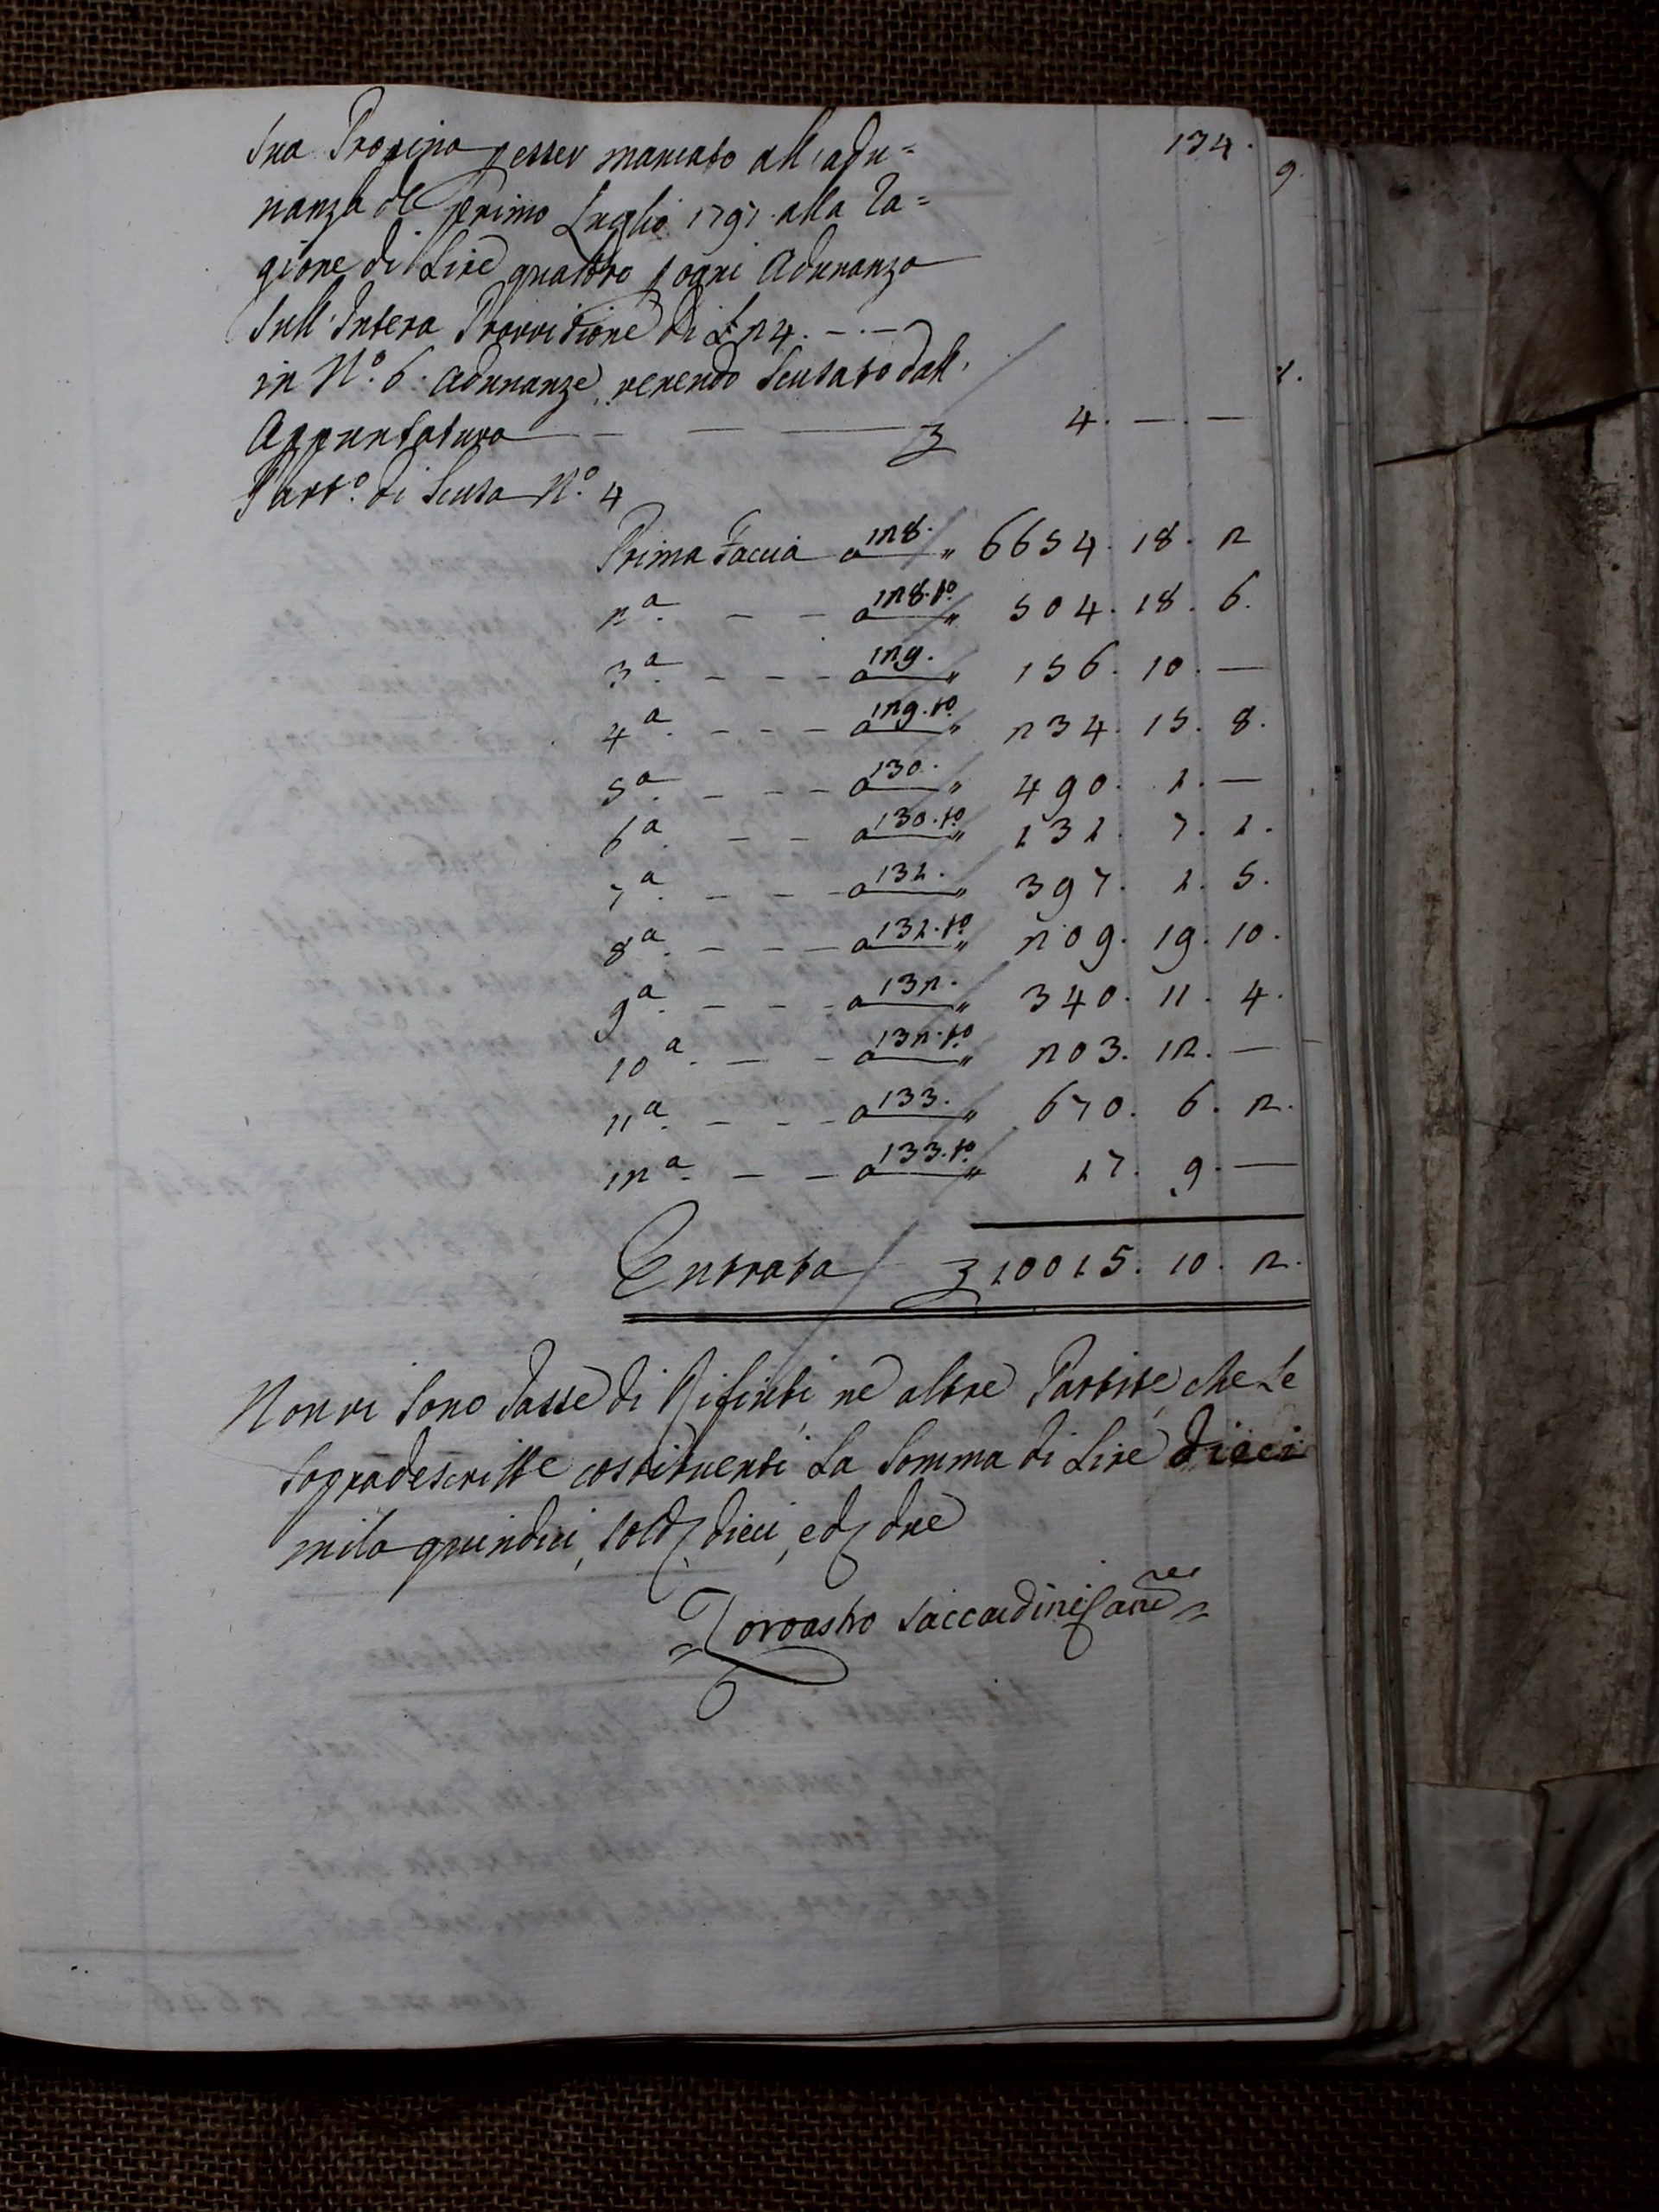 Sua Propina p esser mancato all'adu=
nanza del primo Luglio 1791. alla Ra=
gione di Lire quattro p ogni Adunanza
Sull'Intera Provvisione di £ 24. -.-
in N.° 6. Adunanze, venendo Scusato dall'
Appuntatura — — — £ 4. —. —
Part.° di Scusa N.° 4
134.
Prima Faccia a 128. " 6654. 18. 2
2.a - - a 128.to " 504. 18. 6.
3.a - - - a 129. " 156. 10. —
4.a - - - a 129.to " 234. 15. 8.
5.a - - - a 130. " 490. 1. —
6.a - - a 130.to " 131. 7. 1.
7.a - - - a 131. " 397. 1. 5.
8.a - - - a 131.to " 209. 19. 10.
9.a - - - a 132. " 340. 11. 4.
10.a - - a 132.to " 203. 12. —
11.a - - - a 133. " 670. 6. 2.
12.a - - a 133.to " 17. 9. —
Entrata £ 10015. 10. 2.
Non vi sono Tasse di Rifiuti, nè altre Partite, che Le
Sopradescritte costituenti La Somma di Lire dieci
mila quindici, sold dieci, e d due
Zoroastro Saccardini Canc.re